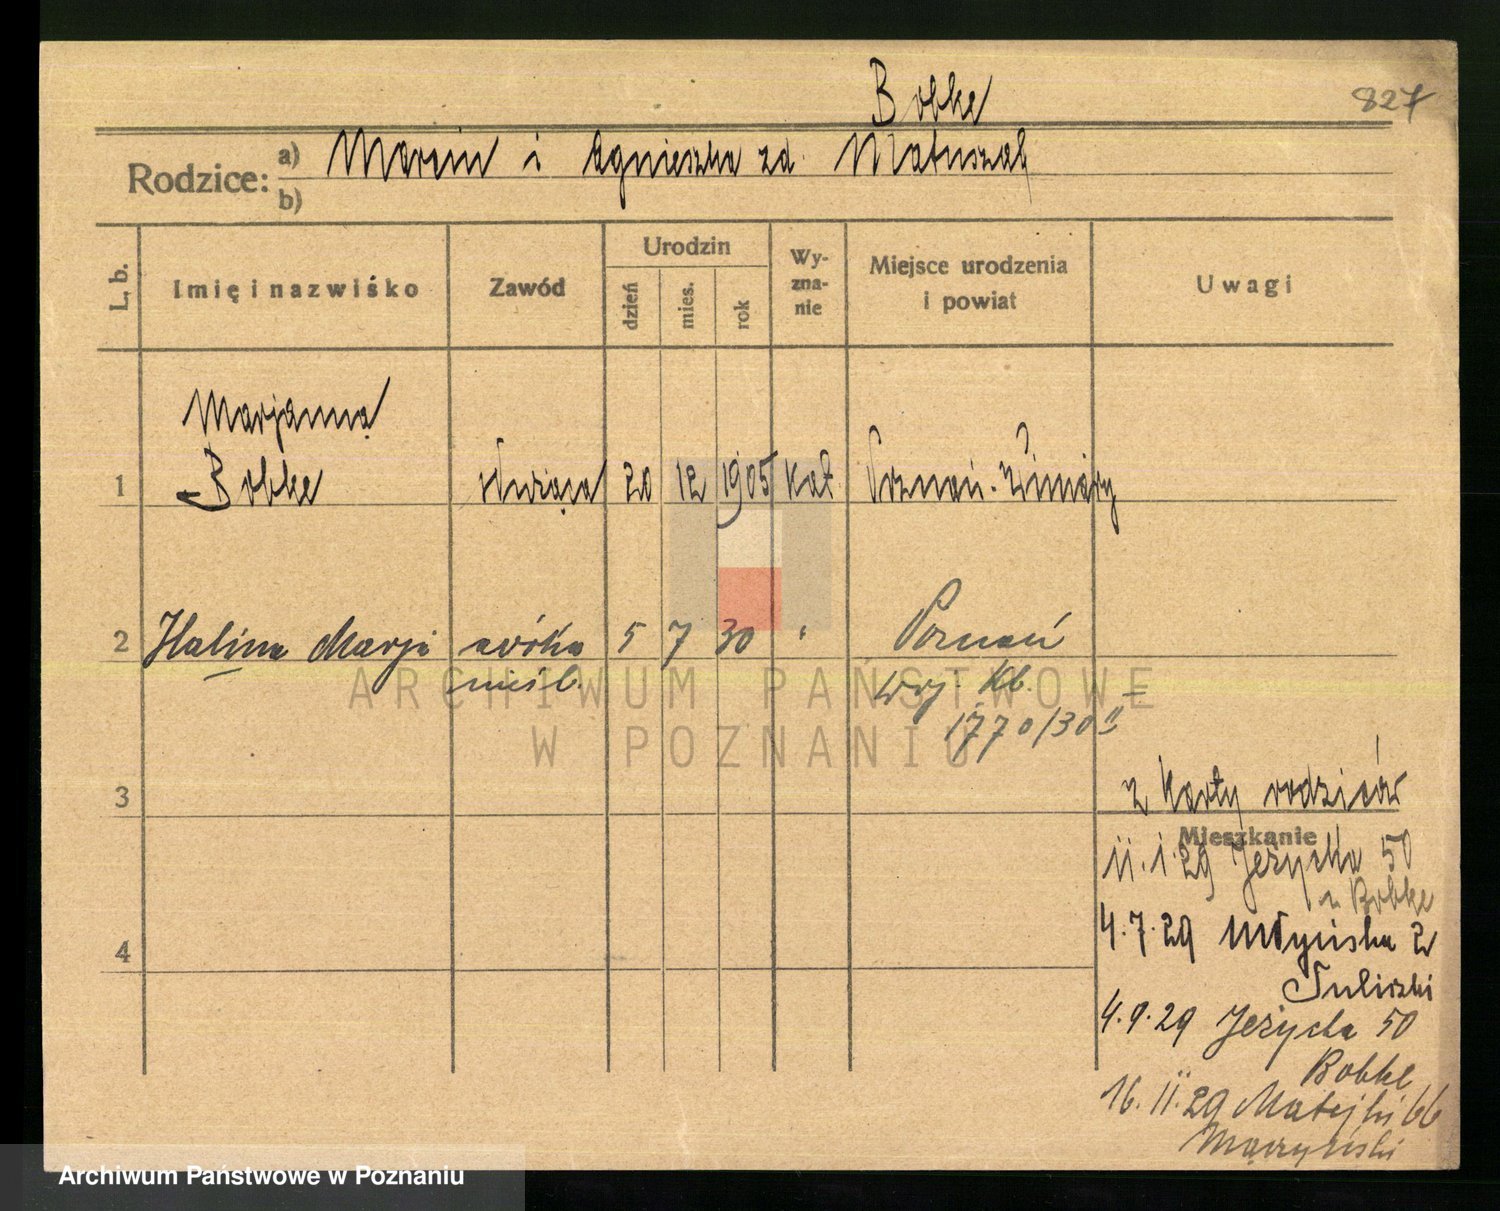 Bobke
827
Rodzice: a) Marcin i Agnieszka zd. Matuszak
b)
L. b. Imię i nazwisko Zawód Urodzin dzień mies. rok Wy-zna-nie Miejsce urodzenia i powiat Uwagi
Marjanna
1 Bobke służąca 20 12 1905 kat Poznań-Winiary
2 Halina Marja córka 5 7 30 " Poznań
nieśl. wyj. Kb.
1770/30 II
ARCHIWUM PAŃSTWOWE
W POZNANIU
3
z karty rodziców
Mieszkanie
11.1.29 Jeżycka 50
u Bobke
4
4.7.29 Młyńska 2
4.9.29 Jeżycka 50
Bobke
16.11.29 Matejki 66
Archiwum Państwowe w Poznaniu